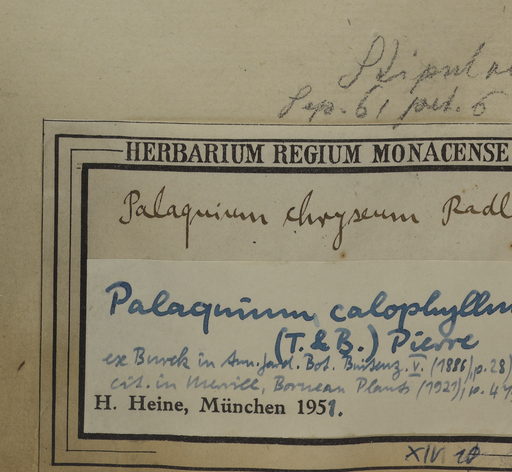 Stipul
Sep. 6, pet. 6
HERBARIUM REGIUM MONACENSE
Palaquium chryseum Radl
Palaquium calophyllu
(T. & B.) Pierre
ex Burck in Ann. Jard. Bot. Buitenz. V. (1886), p. 28)
cit. in Merrill, Bornean Plants (1921), p. 4
H. Heine, München 1951.